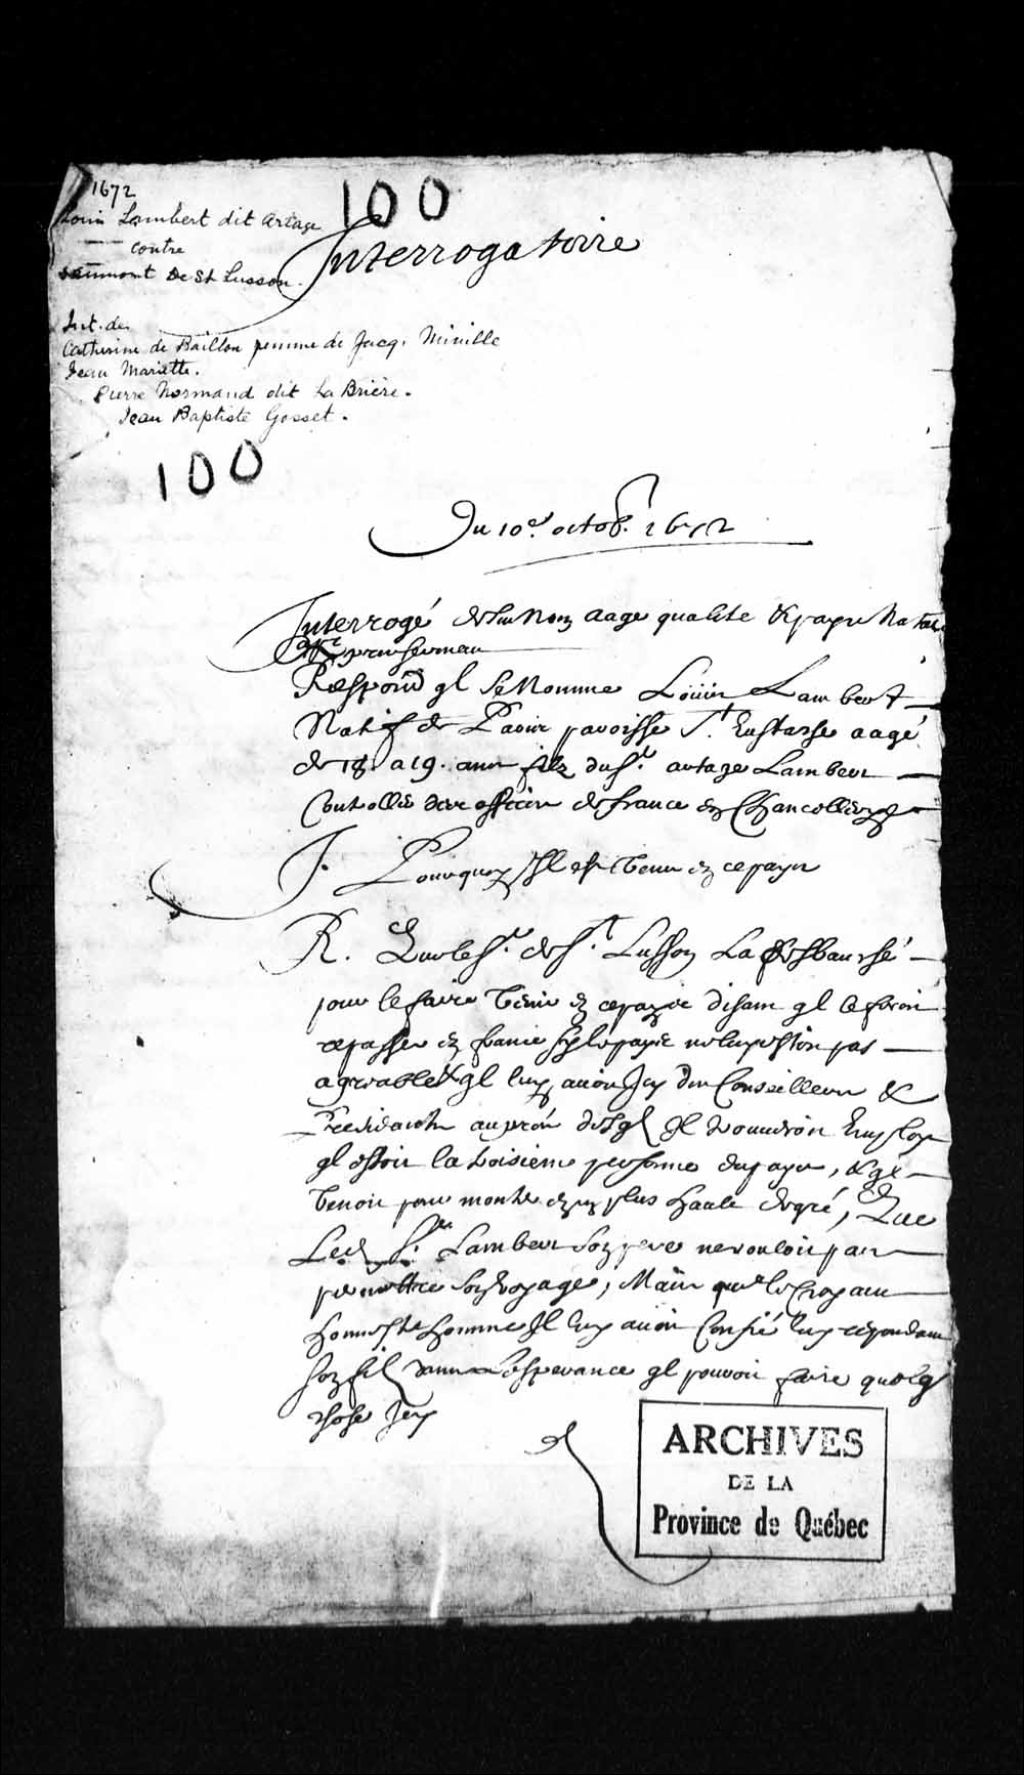 1672
100
Louis Lambert dit Artage
contre
Daumont De St Lusson.
Interrogatoire
Int. de
Catherine de Baillon femme de Jacq. Miville
Jean Mariette.
Pierre Normand dit La Brière.
Jean Baptiste Gosset.
100
Du 10e. octob. 1672
Interrogé de son Nom aage qualité & pays Natal
serment
Respond ql se Nomme Louis Lambert
Natif de Paris paroisse St. Eustasse aagé
de 18. a 19. ans filz du Sr. artage Lambert
Controlleur des offices de france en Chancellerye
J. Pourquoy Il est venu en ce pays
R. Que le Sr. de St. Lusson La desbausché
pour le faire venir en ce pays disant ql le feroit
repasser en france sy le pays ne luy estoit pas
agreable & ql luy avoit des Conseillers &
Presidents Il voudroit Employer
ql estoit la troisieme personne du pays, & ql
venoit pour monter en un plus haute degré, Que
Led. Sr. Lambert son pere ne vouloit pas
permettre son voyage, Mais que le Croyant
honneste homme Il luy avoit Confié
son fils dans Lesperance ql pouvoit faire quelq
chose Icy
ARCHIVES
DE LA
Province de Québec